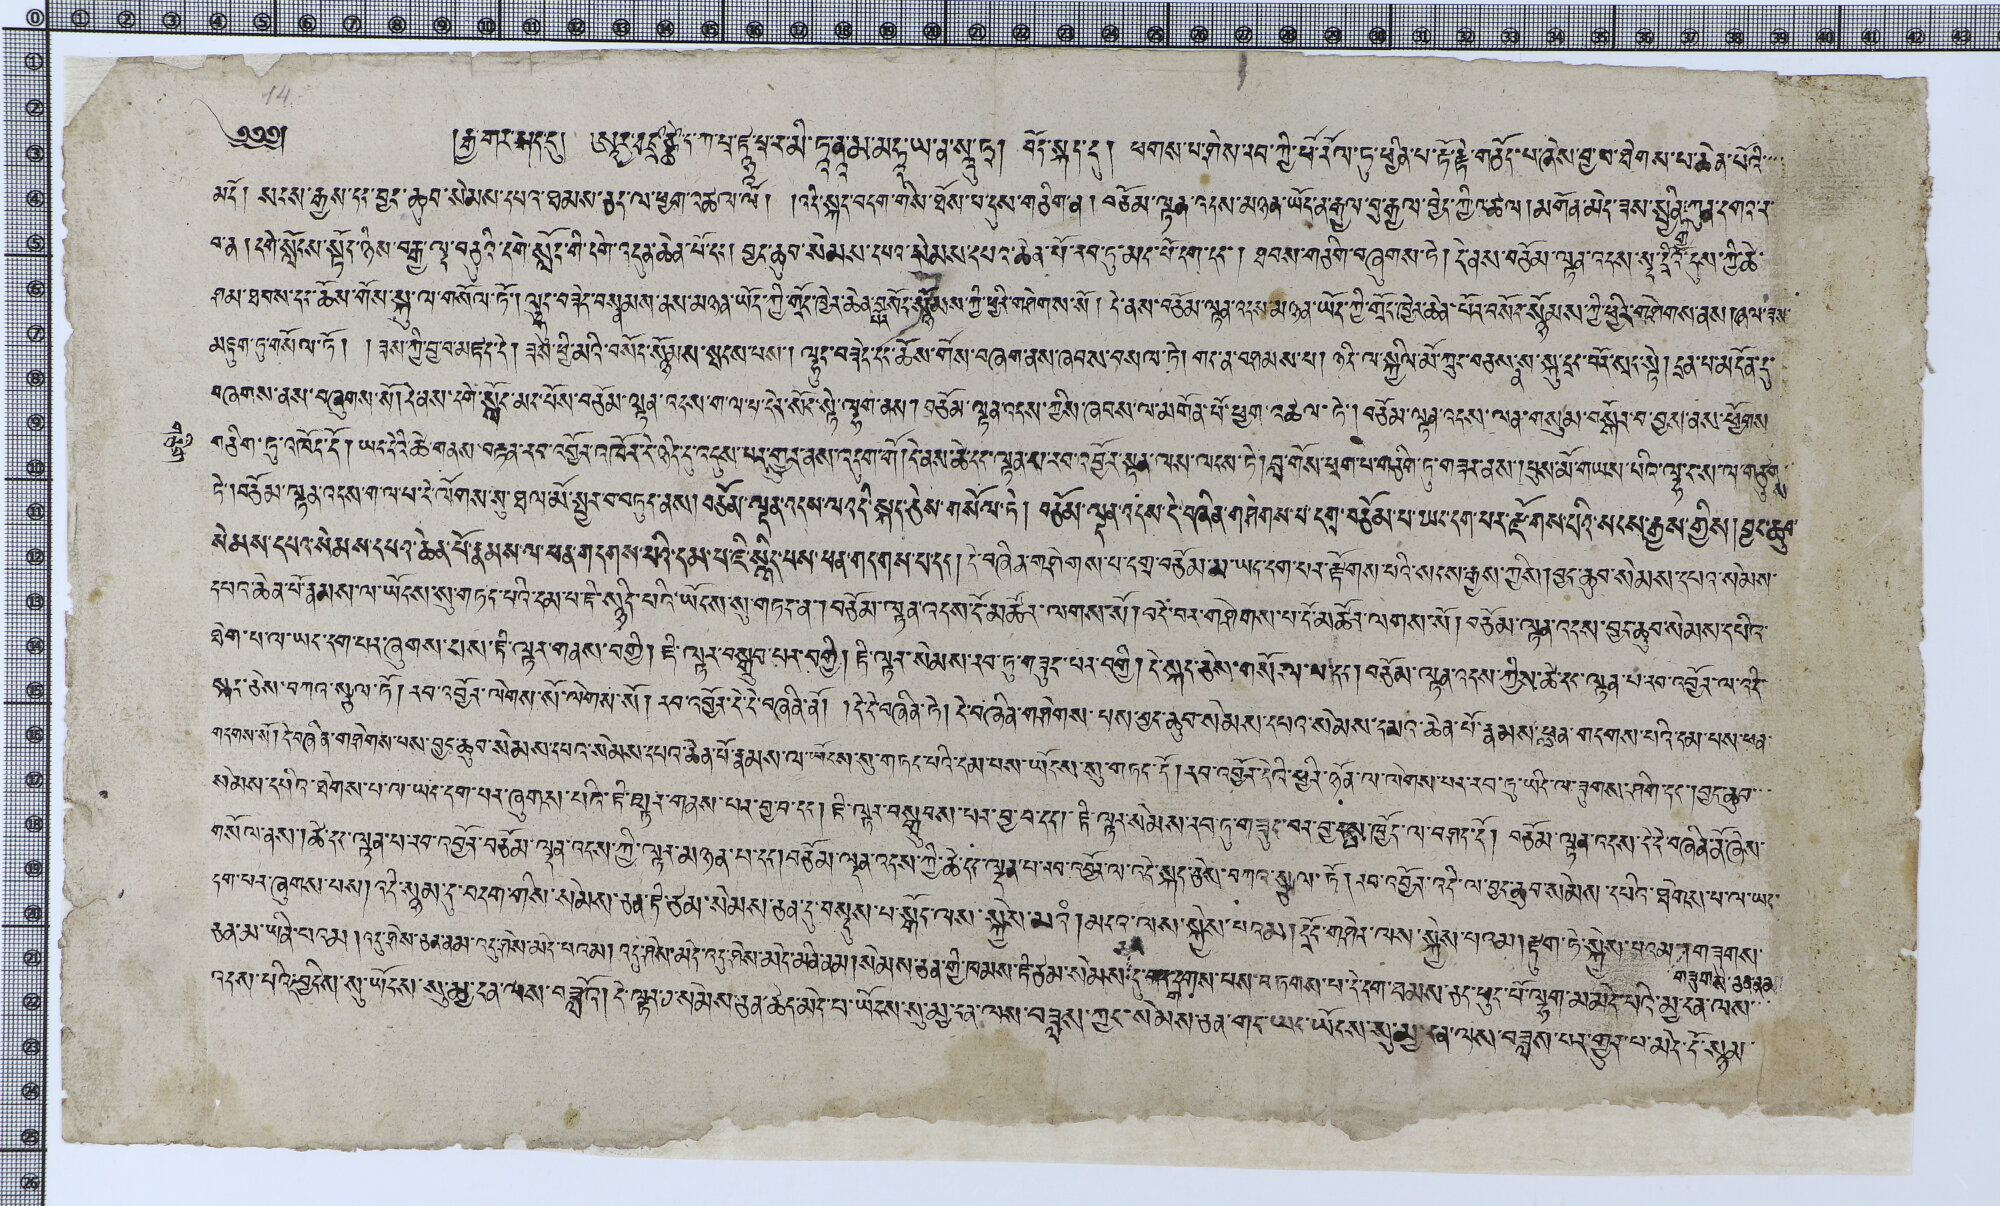 ༄༅༅། །རྒྱ་གར་སྐད་དུ། ཨརྱ་བཛྲ་ཙྪེ་ད་ཀ་པྲ་ཛྙཱ་པ་ར་མི་ཏཱ་ནཱ་མ་མ་ཧཱ་ཡ་ན་སུ་ཏྲ། བོད་སྐད་དུ། ཕགས་པ་ཤེས་རབ་ཀྱི་ཕ་རོལ་ཏུ་ཕྱིན་པ་རྡོ་རྗེ་གཅོད་པ་ཞེས་བྱ་བ་ཐེགས་པ་ཆེན་པོའི་
མདོ། སངས་རྒྱས་དང་བྱང་ཆུབ་སེམས་དཔའ་ཐམས་ཅད་ལ་ཕྱག་འཚལ་ལོ། །འདི་སྐད་བདག་གིས་ཐོས་པ་དུས་གཅིག་ན། བཅོམ་ལྡན་འདས་མཉན་ཡོད་ན་རྒྱལ་བུ་རྒྱལ་བྱེད་ཀྱི་ཚལ། མགོན་མེད་ཟས་སྦྱིན་ཀུན་དགའ་ར་
བ་ན། དགེ་སློང་སྟོང་ཉིས་བརྒྱ་ལྔ་བཅུའི་དགེ་སློང་གི་དགེ་འདུན་ཆེན་པོ་དང་། བྱང་ཆུབ་སེམས་དཔའ་སེམས་དཔའ་ཆེན་པོ་རབ་ཏུ་མང་པོ་དག་དང་། ཐབས་གཅིག་བཞུགས་ཏེ། དེ་ནས་བཅོམ་ལྡན་འདས་སྔ་དྲོའི་དུས་ཀྱི་ཚེ་
ཤམ་ཐབས་དང་ཆོས་གོས་སྐུ་ལ་གསོལ་ཏོ། ལྷུང་བཟེད་བསྣམས་ནས་མཉན་ཡོད་ཀྱི་གྲོང་ཁྱེར་ཆེན་པོར་བསོད་སྙོམས་ཀྱི་ཕྱིར་གཤེགས་སོ། དེ་ནས་བཅོམ་ལྡན་འདས་མཉན་ཡོད་ཀྱི་གྲོང་ཁྱེར་ཆེན་པོར་བསོད་སྙོམས་ཀྱི་ཕྱིར་གཤེགས་ནས། ཞལ་ཟས་
མཇུག་ཏུ་གསོལ་ཏོ། །ཟས་ཀྱི་བྱ་བ་མཛད་དེ། ཟས་ཕྱི་མའི་བསོད་སྙོམས་སྤངས་པས། ལྷུང་བཟེད་དང་ཆོས་གོས་བཞག་ནས་ཞབས་བསལ་ཏེ། གདན་བཤམས་པ། ཉིད་ལ་སྐྱིལ་མོ་ཀྲུང་བཅས་ནས་སྐུ་དྲང་པོར་སྲང་སྟེ། དྲན་པ་མངོན་དུ་
བཞགས་ནས་བཞུགས་སོ། དེ་ནས་དགེ་སློང་མང་པོས་བཅོམ་ལྡན་འདས་ག་ལ་པ་དེར་སོང་སྟེ་ལྷག་ནས། བཅོམ་ལྡན་འདས་ཀྱིས་ཞབས་ལ་མགོན་པོ་ཕྱག་འཚལ་ཏེ། བཅོམ་ལྡན་འདས་ལན་གསུམ་བསྐོར་བ་བྱས་ནས་ཕྱོགས
གཅིག་ཏུ་འཁོད་དོ། ཡང་དེའི་ཚེ་གནས་བརྟན་རབ་འབྱོར་འཁོར་དེ་ཉིད་དུ་འདུས་པར་གྱུར་ནས་འདུག་གོ། དེ་ནས་ཚེ་དང་ལྡན་པ་རབ་འབྱོར་སྟན་ལས་ལངས་ཏེ། བླ་གོས་ཕྲག་པ་གཅིག་ཏུ་གཟར་ནས། །པུས་མོ་གཡས་པའི་ལྷ་ང་ས་ལ་བཙུགས་
ཏེ། བཅོམ་ལྡན་འདས་ག་ལ་པ་དེ་ལོགས་སུ་ཐལ་མོ་སྦྱར་བ་བཏུད་ནས། བཅོམ་ལྡན་འདས་ལ་འདི་སྐད་ཅེས་གསོལ་ཏེ། བཅོམ་ལྡན་འདས་དེ་བཞིན་གཤེགས་པ་དགྲ་བཅོམ་པ་ཡང་དག་པར་རྫོགས་པའི་སངས་རྒྱས་གྱིས། བྱང་ཆུབ་
སེམས་དཔའ་སེམས་དཔའ་ཆེན་པོ་རྣམས་ལ་ཕན་གདགས་པའི་དམ་པ་ཇི་སྙེད་པས་ཕན་གདགས་པ་དང་། དེ་བཞིན་གཤེགས་པ་དགྲ་བཅོམ་མ་ཡང་དག་པར་རྫོགས་པའི་སངས་རྒྱས་ཀྱིས། བྱང་ཆུབ་སེམས་དཔའ་སེམས་
དཔའ་ཆེན་པོ་རྣམས་ལ་ཡོངས་སུ་གཏད་པའི་དམ་པ་ཇི་སྙེད་པའི་ཡོངས་སུ་གཏད་ན། བཅོམ་ལྡན་འདས་ངོ་མཚོར་ལགས་སོ། བདེ་བར་གཤེགས་པ་ངོ་མཚོར་ལགས་སོ། བཅོམ་ལྡན་འདས་བྱང་ཆུབ་སེམས་དཔའི་
ཐེག་པ་ལ་ཡང་དག་པར་ཞུགས་པས་ཇི་ལྟར་གནས་བགྱི། ཇི་ལྟར་བསྒྲུབ་པར་བགྱི། ཇི་ལྟར་སེམས་རབ་ཏུ་གཟུང་པར་བགྱི། དེ་སྐད་ཅེས་གསོལ་པ་དང་། བཅོམ་ལྡན་འདས་ཀྱིས་ཚེ་དང་ལྡན་པ་རབ་འབྱོར་ལ་འདི་
སྐད་ཅེས་བཀའ་སྩལ་ཏོ། རབ་འབྱོར་ལེགས་སོ་ལེགས་སོ། རབ་འབྱོར་དེ་དེ་བཞིན་ནོ། །དེ་དེ་བཞིན་ཏེ། དེ་བཞིན་གཤེགས་པས་བྱང་ཆུབ་སེམས་དཔའ་སེམས་དཔའ་ཆེན་པོ་རྣམས་ཕན་གདགས་པའི་དམ་པས་ཕན་
གདགས་སོ། དེ་བཞིན་གཤེགས་པས་བྱང་ཆུབ་སེམས་དཔའ་སེམས་དཔའ་ཆེན་པོ་རྣམས་ལ་ཡོངས་སུ་གཏད་པའི་དམ་པས་ཡོངས་སུ་གཏད་དོ། རབ་འབྱོར་དེའི་ཕྱིར་ཉོན་ལ་ལེགས་པར་རབ་ཏུ་ཡིད་ལ་ཟུགས་ཤིག་དང་། བྱང་ཆུབ་
སེམས་དཔའི་ཐེགས་པ་ལ་ཡང་དག་པར་ཞུགས་པའི་ཇི་ལྟར་གནས་པར་བྱ་བ་དང་། ཇི་ལྟར་བསྒྲུབས་པར་བྱ་བ་དང་། ཇི་ལྟར་སེམས་རབ་ཏུ་གཟུང་བར་བྱ་བ་ཁྱོད་ལ་བཤད་དོ། བཅོམ་ལྡན་འདས་དེ་དེ་བཞིན་ནོ་ཞེས་
གསོལ་ནས། །ཚེ་དང་ལྡན་པ་རབ་འབྱོར་བཅོམ་ལྡན་འདས་ཀྱི་ལྟར་མཉན་པ་དང་། བཅོམ་ལྡན་འདས་ཀྱི་ཚེ་དང་ལྡན་པ་རབ་འབྱོར་ལ་འདི་སྐད་ཅེས་བཀའ་སྩལ་ཏོ། རབ་འབྱོར་འདི་ལ་བྱང་ཆུབ་སེམས་དཔའི་ཐེགས་པ་ལ་ཡང་
དག་པར་ཞུགས་པས། འདི་སྙམ་དུ་བདག་གིས་སེམས་ཅན་ཇི་ཙམ་སེམས་ཅན་དུ་བསྡུས་པ་སྒོང་ལས་སྐྱེས་མའི། མངལ་ལས་སྐྱེས་པའམ། དྲོད་གཤེར་ལས་སྐྱེས་པའམ། རྫུག་ཏེ་སྐྱེས་པའམ་། གཟུགས་
གཟུགས་ཅན་ནམ
ཅན་མ་ཡིན་པའམ། འདུ་ཤེས་ཅན་ནམ་འདུ་ཤེས་མེད་པའམ། འདུ་ཤེས་མེད་འདུ་ཤེས་མེད་མིན་ནམ། སེམས་ཅན་གྱི་ཁམས་ཇི་ཙམ་སེམས་དུ་གདགས་པས་བཏགས་པ་དེ་དག་ཐམས་ཅད་ཕུང་པོ་ལྷག་མ་མེད་པའི་མྱ་ངན་ལས་
འདས་པའི་དབྱིངས་སུ་ཡོངས་སུ་མྱ་ངན་ལས་བཟླའོ། དེ་ལྟར་སེམས་ཅན་ཚད་མེད་པ་ཡོངས་སུ་མྱ་ངན་ལས་བཟླས་ཀྱང་སེམས་ཅན་གང་ཡང་ཡོངས་སུ་མྱ་ངན་ལས་བཟླས་པར་གྱུར་པ་མེད་དོ་སྙམ་